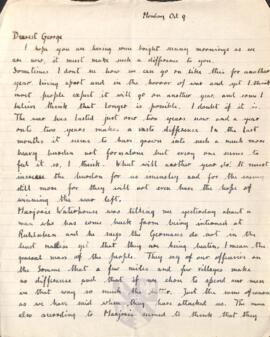 Monday Oct 9
Dearest George
I hope you are having some bright sunny mornings as we
are now, it must make such a difference to you.
Sometimes I don't see how we can go on like this for another
year, living apart and in the horror of war and yet I think
most people expect it will go on another year, and some I
believe think that longer is possible. I doubt if it is.
The war has lasted just over two years now and a year
onto two years makes a vast difference. In the last
months it seems to have grown into such a much more
heavy burden not for alone but every one seems to
feel it so, I think. What will another year do. It must
increase the burden for us immensely and for the enemy
still more for they will not even have the hope of
winning the war left.
Marjorie Waterhouse was telling me yesterday about a
man who has come back from being interned at
Ruhleben and he says the Germans do not in the
least realise yet that they are being beaten, I mean the
general mass of the people. They say of our offensive on
the Somme that a few miles and few villages make
no difference and that if we chose to spend our men
in that way so much the Just the same of course
as we have said when they have attacked us. The man
also according to Marjorie seemed to think that they